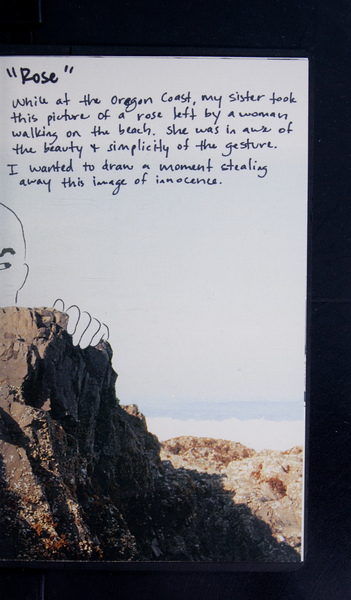 "Rose"
While at the Oregon Coast, my sister took
this picture of a rose left by a woman
walking on the beach. She was in awe of
the beauty & simplicity of the gesture.
I wanted to draw a moment stealing
away this image of innocence.